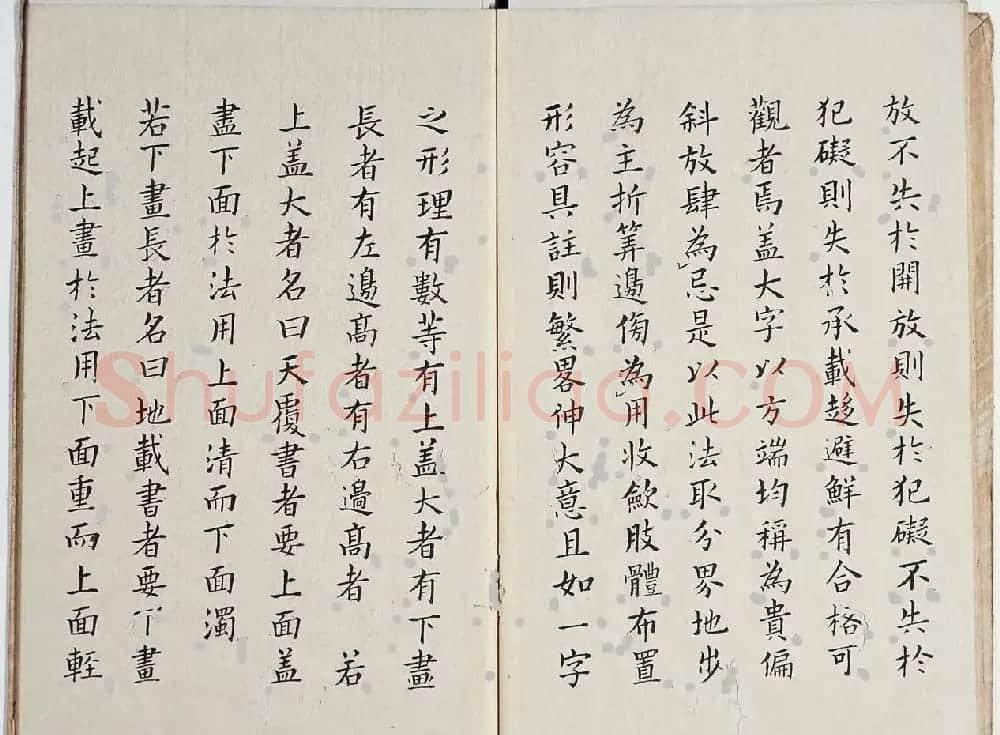 放不失於開放則失於犯礙不失於
犯礙則失於承載趍避鮮有合格可
觀者焉盖大字以方端均稱為貴偏
斜放肆為忌是以此法取分界地步
為主折筭邊傍為用收歛肢體布置
形容具註則繁畧伸大意且如一字
之形理有數等有上盖大者有下畫
長者有左邊高者有右邊高者 若
上盖大者名曰天覆書者要上面盖
盡下面於法用上面清而下面濁
若下畫長者名曰地載書者要下畫
載起上畫於法用下面重而上面輕
Shufaziliao.COM